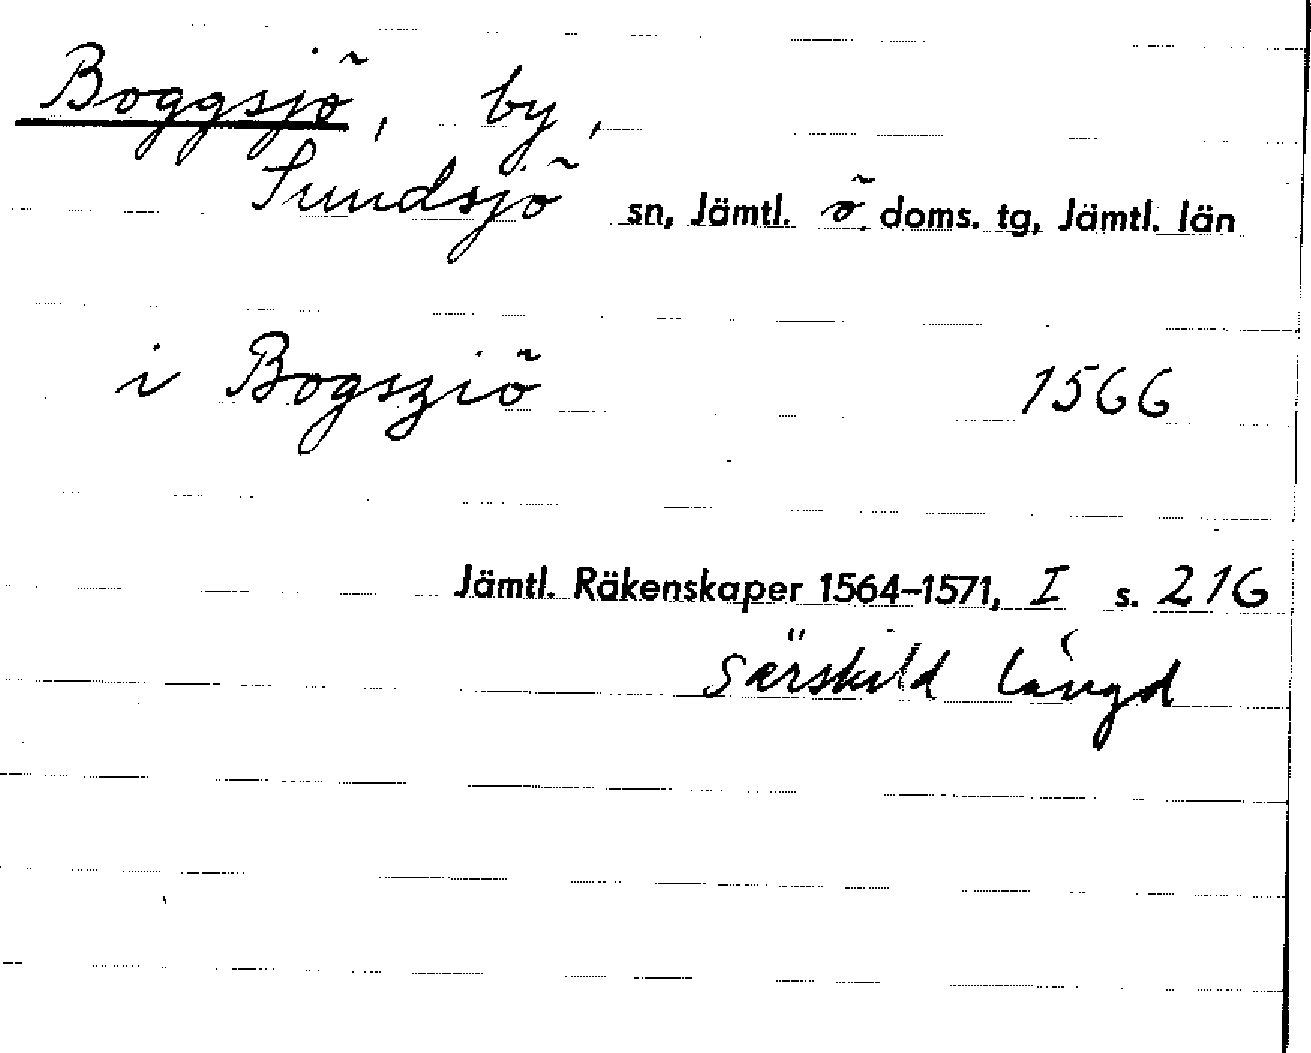 Boggsjö, by,
Sundsjö sn, Jämtl. ö. doms. tg, Jämtl. län
i Bogsziö 1566
Jämtl. Räkenskaper 1564–1571, I s. 216
Särskild längd